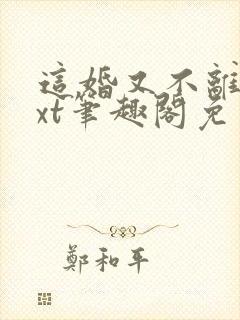 這婚又不離
xt筆趣閣免
鄭和平